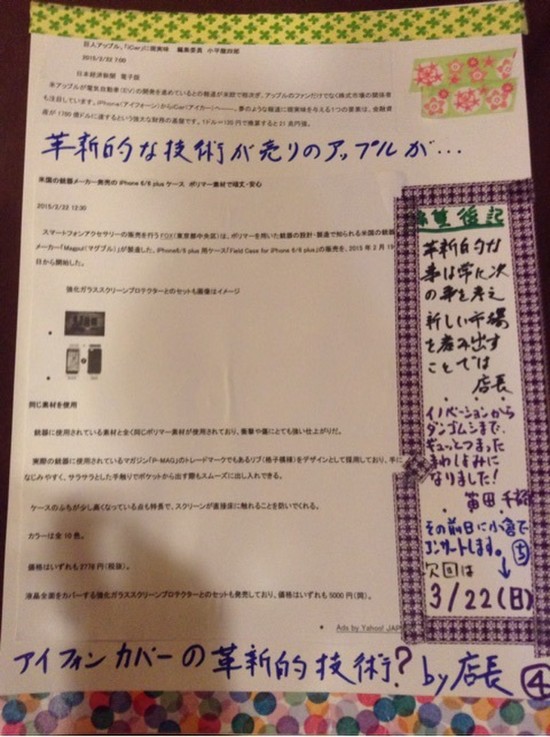 巨人アップル、「iCar」に現実味　編集委員　小平龍四郎
2015/2/22 7:00
日本経済新聞　電子版
米アップルが電気自動車（EV）の開発を進めているとの報道が米欧で相次ぎ、アップルのファンだけでなく株式市場の関係者
も注目しています。iPhone（アイフォーン）からiCar（アイカー）へ――。夢のような報道に現実味を与える1つの要素は、金融資
産が1780億ドルに達するという強大な財務の基盤です。1ドル＝120円で換算すると21兆円強。
革新的な技術が売りのアップルが…
米国の銃器メーカー発売の iPhone 6/6 plus ケース　ポリマー素材で頑丈・安心
2015/2/22 12:30
スマートフォンアクセサリーの販売を行う FOX（東京都中央区）は、ポリマーを用いた銃器の設計・製造で知られる米国の銃器
メーカー「Magpul（マグプル）」が製造した、iPhone6/6 plus 用ケース「Field Case for iPhone 6/6 plus」の販売を、2015 年 2 月 19
日から開始した。
強化ガラススクリーンプロテクターとのセットも画像はイメージ
同じ素材を使用
銃器に使用されている素材と全く同じポリマー素材が使用されており、衝撃や傷にとても強い仕上がりだ。
実際の銃器に使用されているマガジン「P-MAG」のトレードマークでもあるリブ（格子模様）をデザインとして採用しており、手に
なじみやすく、サラサラとした手触りでポケットから出す際もスムーズに出し入れできる。
ケースのふちが少し高くなっている点も特長で、スクリーンが直接床に触れることを防いでくれる。
カラーは全 10 色。
価格はいずれも 2778 円（税抜）。
液晶全面をカバーする強化ガラススクリーンプロテクターとのセットも発売しており、価格はいずれも 5000 円（同）。
Ads by Yahoo! JAP
アイフォンカバーの革新的技術? by 店長 ④
編集後記
革新的な
事は常に次
の事を考え
新しい市場
を産み出す
ことでは
店長
イノベーションから
ダンゴムシまで、
ギュッとつまった
まわしよみに
なりました!
その前日に小倉で
コンサートします。
次回は
3/22(日)